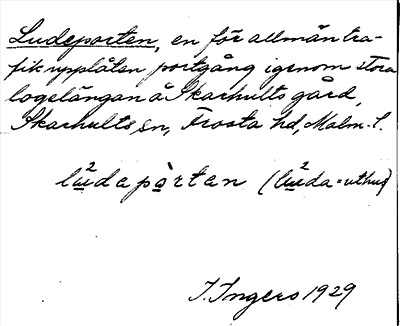 Ludeporten, en för allmän tra-
fik upplåten portgång igenom stora
logelängan å Skarhults gård,
Skarhults sn, Frosta hd, Malm. l.
lu²dapòrtan (lu²da = uthus)
I. Ingers 1929